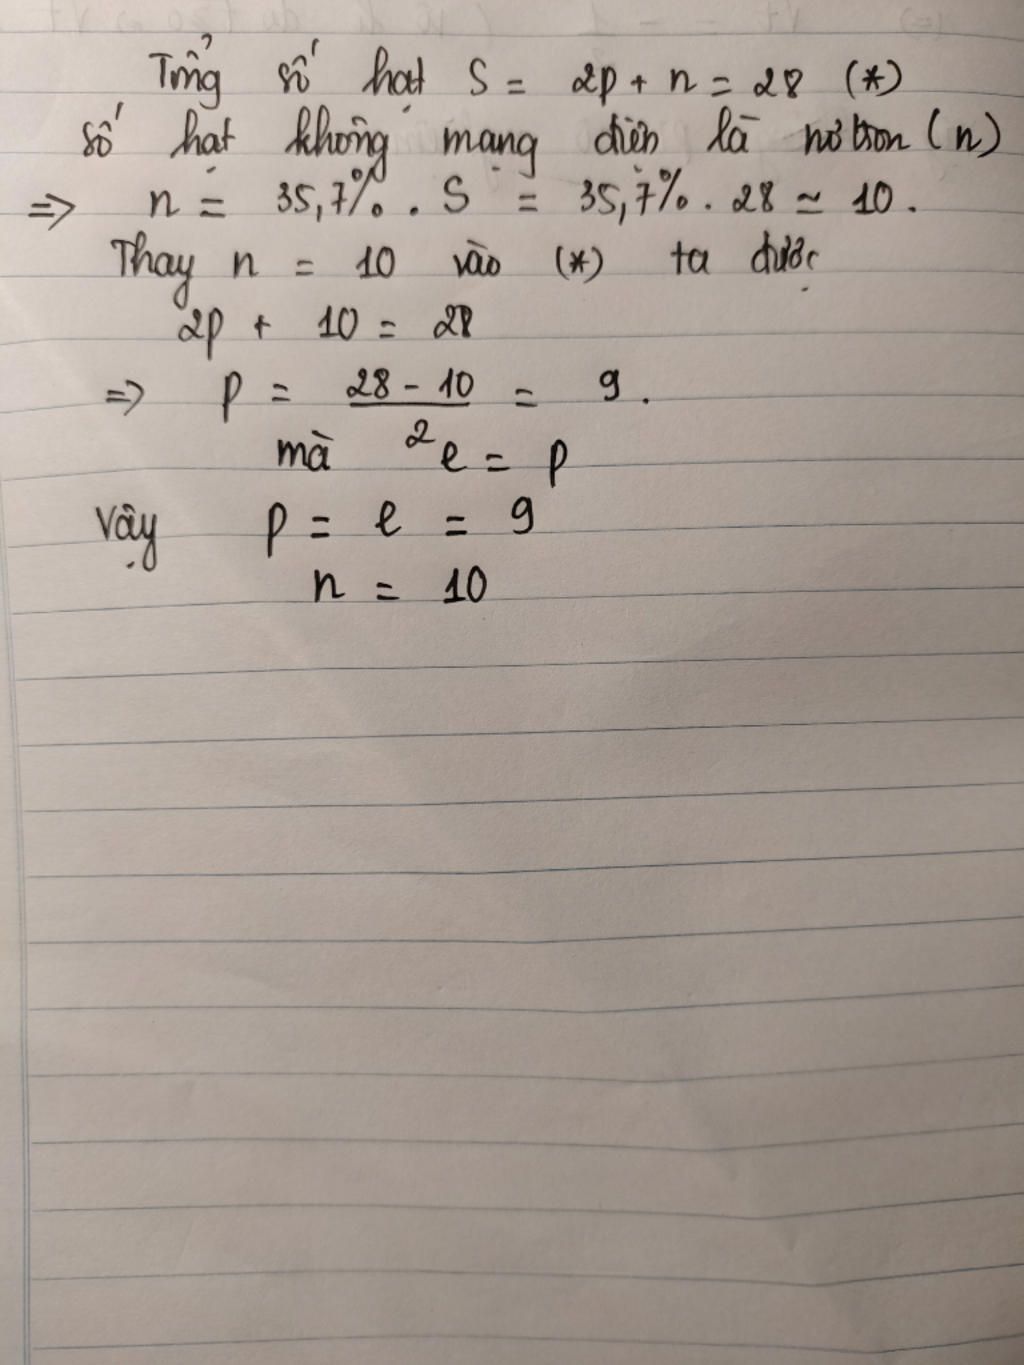 Tổng số hạt S = 2p + n = 28 (*)
số hạt không mạng điện là nơtron (n)
=> n = 35,7% . S = 35,7% . 28 ≃ 10 .
Thay n = 10 vào (*) ta được
2p + 10 = 28
=> p = 28 - 10 / 2 = 9 .
mà e = p
Vậy p = e = 9
n = 10